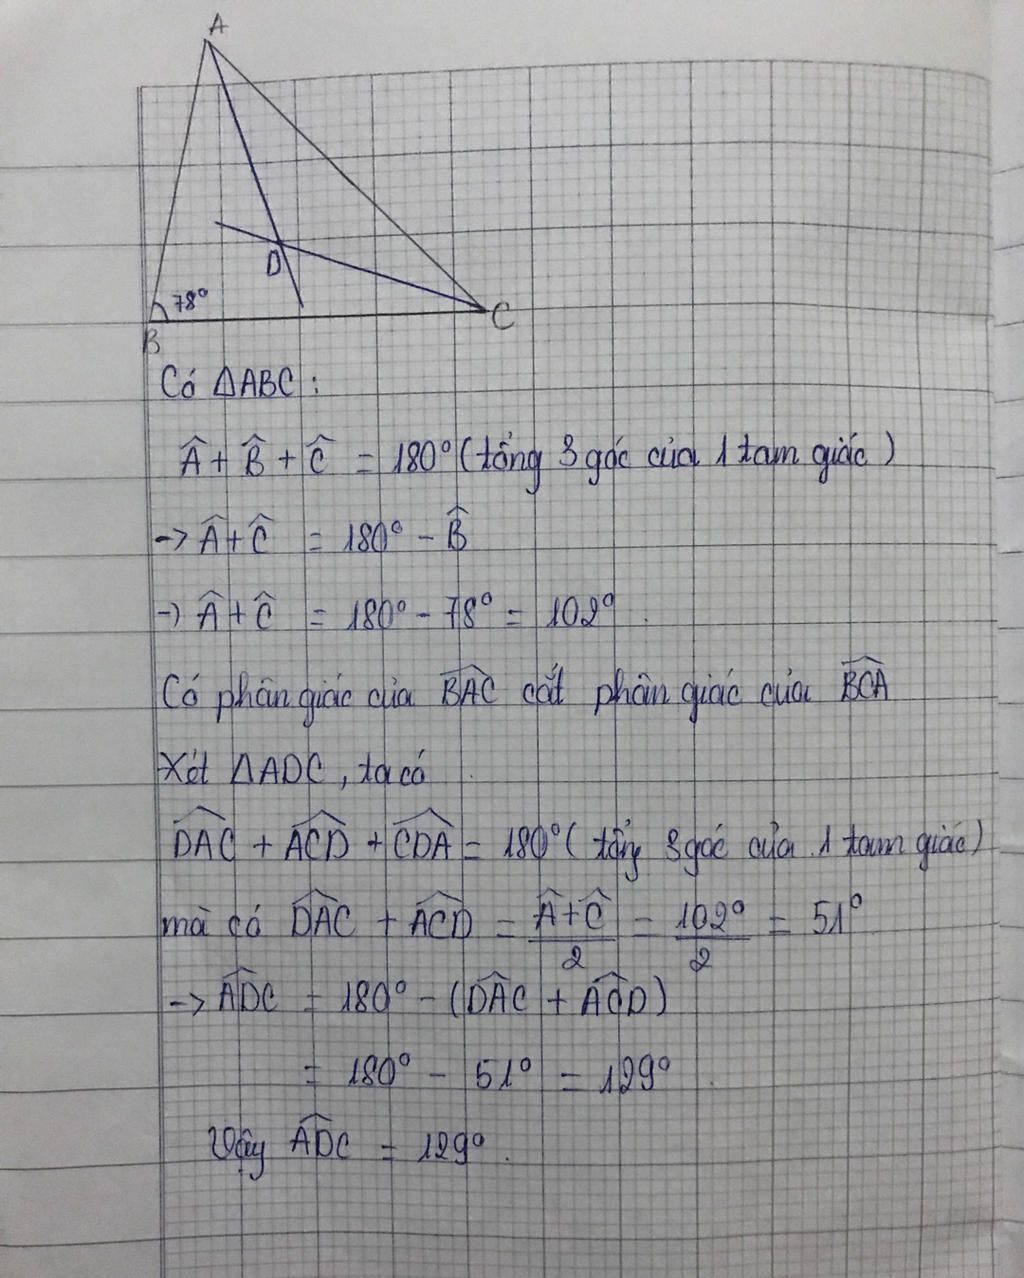 A
D
78°
B
C
Có ΔABC :
Â + B̂ + Ĉ = 180° (tổng 3 góc của 1 tam giác)
-> Â + Ĉ = 180° - B̂
-> Â + Ĉ = 180° - 78° = 102°.
Có phân giác của \widehat{BAC} cắt phân giác của \widehat{BCA}
Xét ΔADC, ta có
\widehat{DAC} + \widehat{ACD} + \widehat{CDA} = 180° ( tổng 3 góc của 1 tam giác)
mà có \widehat{DAC} + \widehat{ACD} = \frac{Â + Ĉ}{2} = \frac{102°}{2} = 51°
-> \widehat{ADC} = 180° - (\widehat{DAC} + \widehat{ACD})
= 180° - 51° = 129°.
Vậy \widehat{ADC} = 129°.